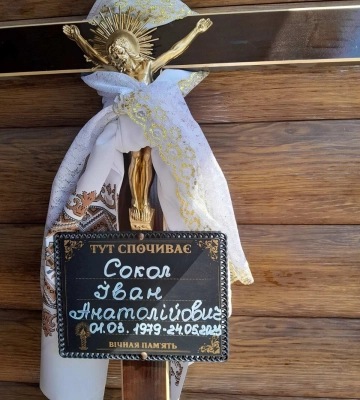 ТУТ СПОЧИВАЄ
Сокол
Іван
Анатолійович
01.03. 1979-24.05.202
ВІЧНАЯ ПАМ'ЯТЬ